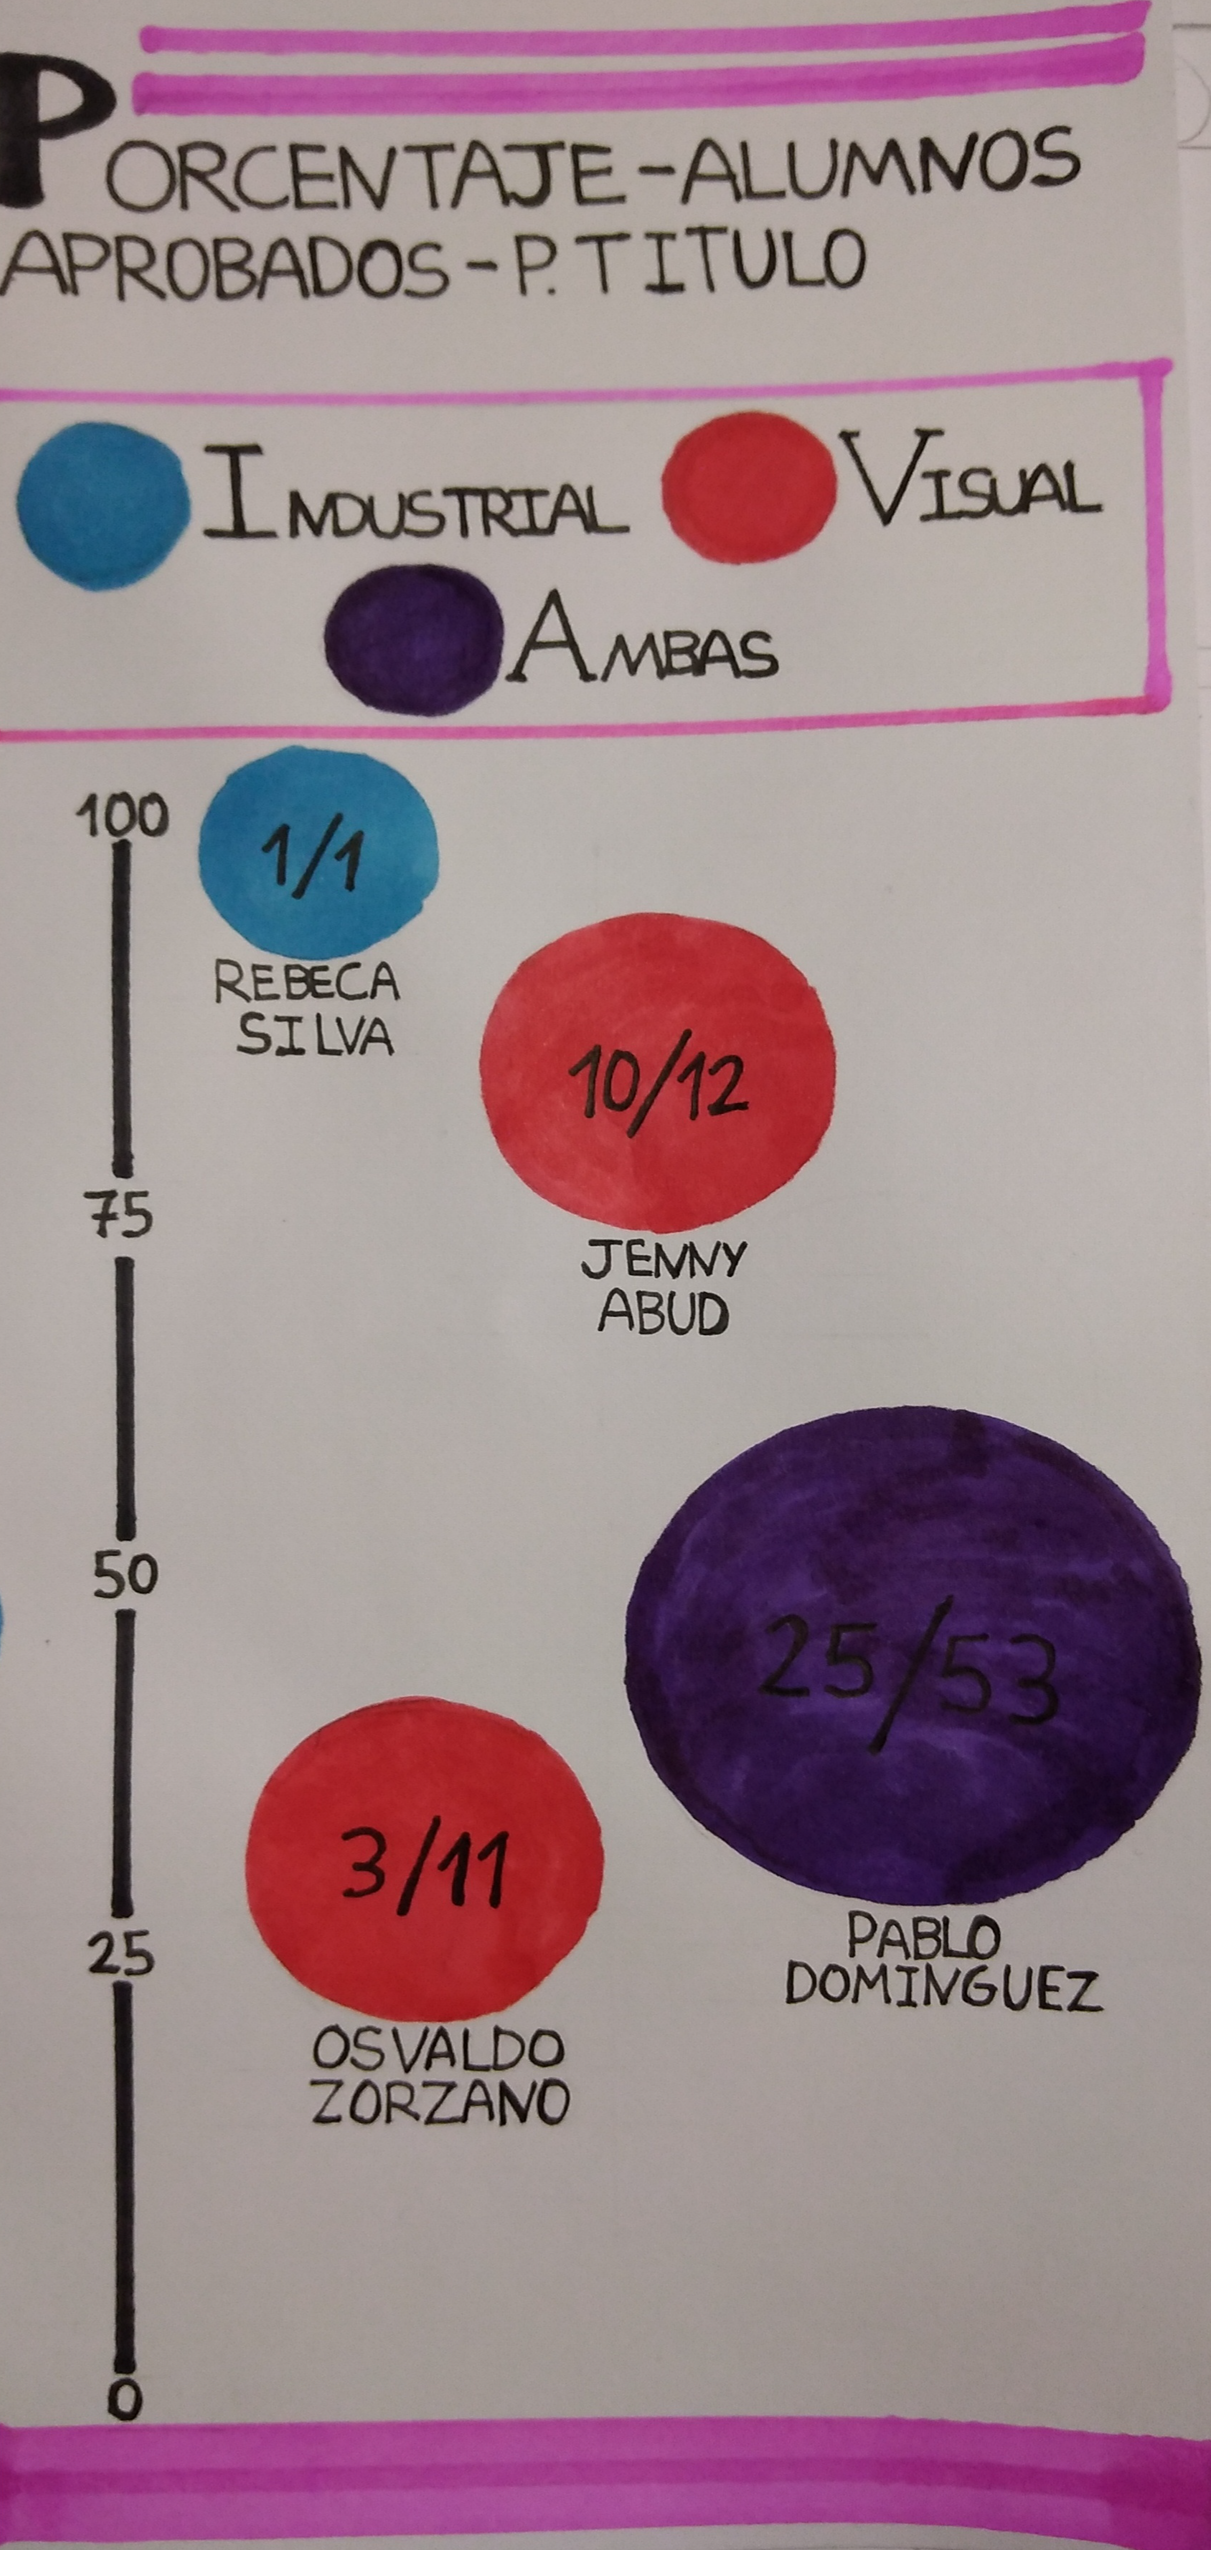 PORCENTAJE-ALUMNOS
APROBADOS-P.TITULO
INDUSTRIAL VISUAL
AMBAS
100
1/1
REBECA
SILVA
10/12
75
JENNY
ABUD
50
25/53
3/11
25
PABLO
DOMINGUEZ
OSVALDO
ZORZANO
0